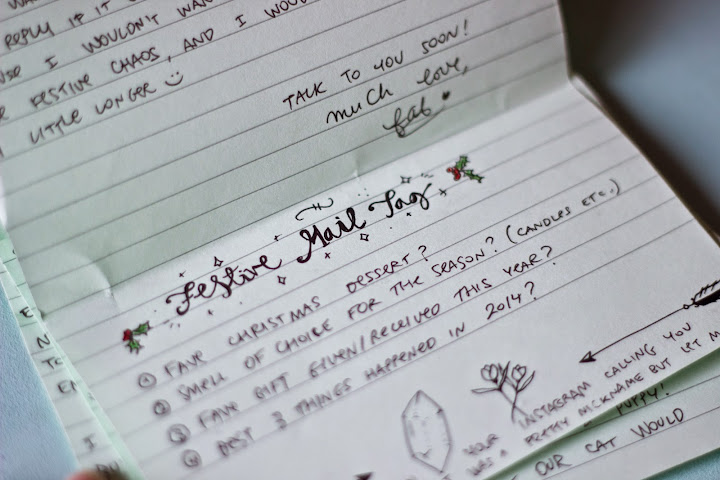 REPLY IF IT
I WOULDN'T WAN
FESTIVE CHAOS, AND I WOU
LITTLE LONGER
TALK TO YOU SOON!
much love,
fab
Festive Mail Tag
① FAVE CHRISTMAS DESSERT?
② SMELL OF CHOICE FOR THE SEASON? (CANDLES ETC.)
③ FAVE GIFT GIVEN/RECEIVED THIS YEAR?
④ BEST 3 THINGS HAPPENED IN 2014?
YOUR INSTAGRAM CALLING YOU
WAS A PRETTY NICKNAME BUT LET M
PUPPY!
OUR CAT WOULD